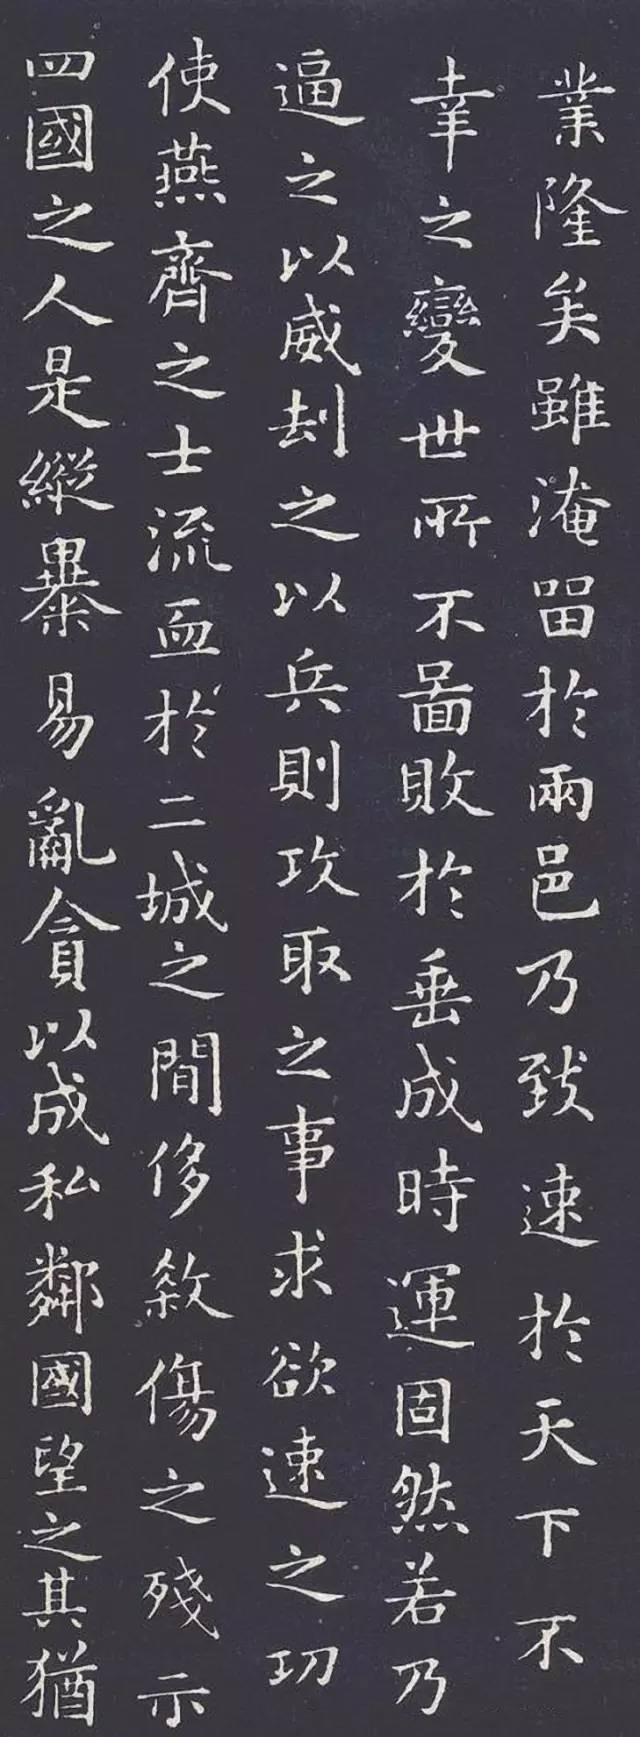 業隆矣雖淹留於兩邑乃致速於天下不
幸之變世所不啚敗於垂成時運固然若乃
逼之以威刧之以兵則攻取之事求欲速之功
使燕齊之士流血於二城之間侈煞傷之殘示
四國之人是縱暴易亂貪以成私鄰國望之其猶